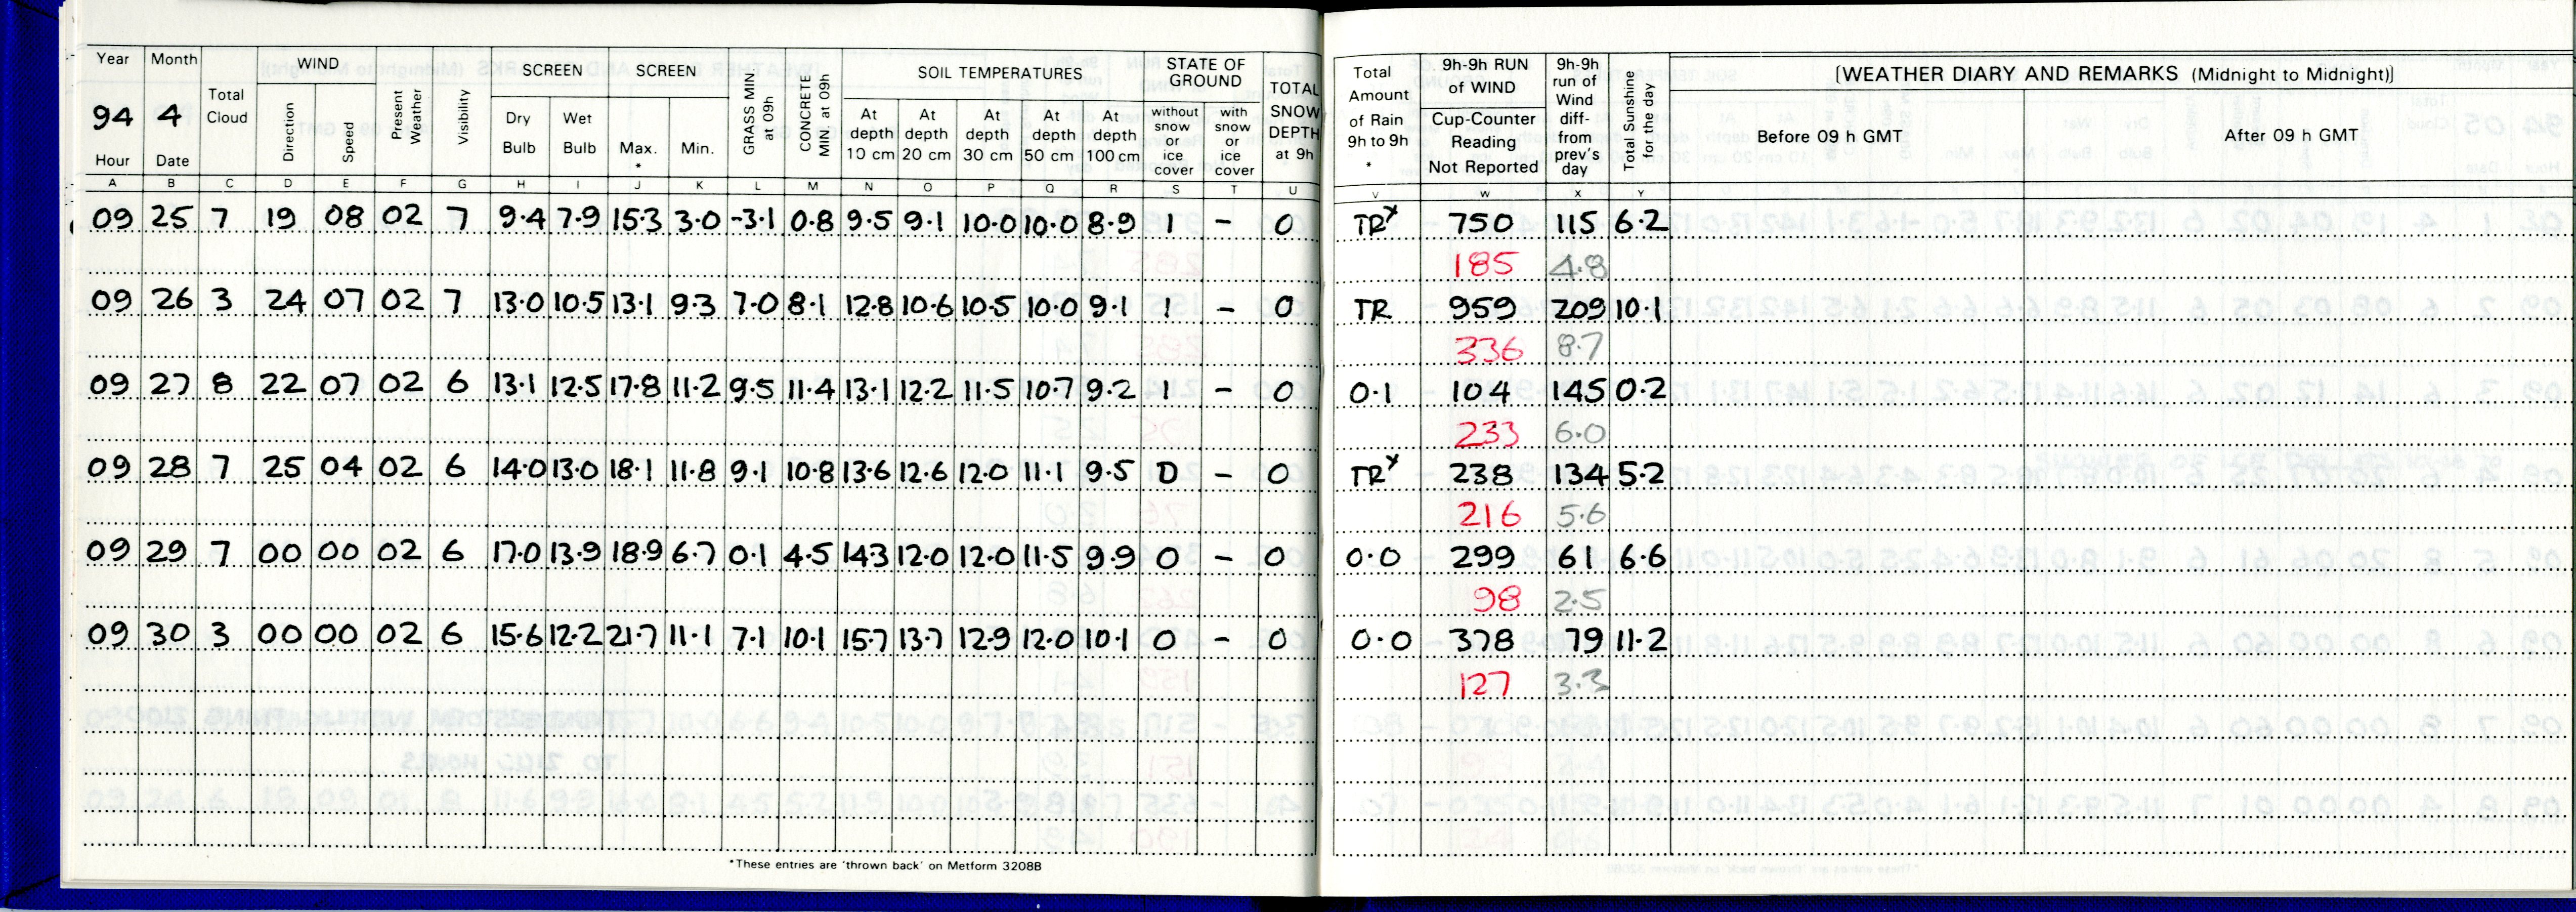 Year Month Total Cloud WIND Present Weather Visibility SCREEN SCREEN GRASS MIN. at 09h CONCRETE MIN. at 09h SOIL TEMPERATURES STATE OF GROUND TOTAL SNOW DEPTH at 9h
94 4 Direction Speed Dry Bulb Wet Bulb Max. * Min. At depth 10 cm At depth 20 cm At depth 30 cm At depth 50 cm At depth 100 cm without snow or ice cover with snow or ice cover
Hour Date
A B C D E F G H I J K L M N O P Q R S T U
09 25 7 19 08 02 7 9.4 7.9 15.3 3.0 -3.1 0.8 9.5 9.1 10.0 10.0 8.9 1 - 0
09 26 3 24 07 02 7 13.0 10.5 13.1 9.3 7.0 8.1 12.8 10.6 10.5 10.0 9.1 1 - 0
09 27 8 22 07 02 6 13.1 12.5 17.8 11.2 9.5 11.4 13.1 12.2 11.5 10.7 9.2 1 - 0
09 28 7 25 04 02 6 14.0 13.0 18.1 11.8 9.1 10.8 13.6 12.6 12.0 11.1 9.5 0 - 0
09 29 7 00 00 02 6 17.0 13.9 18.9 6.7 0.1 4.5 14.3 12.0 12.0 11.5 9.9 0 - 0
09 30 3 00 00 02 6 15.6 12.2 21.7 11.1 7.1 10.1 15.7 13.7 12.9 12.0 10.1 0 - 0
*These entries are 'thrown back' on Metform 3208B
Total Amount of Rain 9h to 9h * 9h-9h RUN of WIND Cup-Counter Reading Not Reported 9h-9h run of Wind diff- from prev's day Total Sunshine for the day [WEATHER DIARY AND REMARKS (Midnight to Midnight)]
Before 09 h GMT After 09 h GMT
V W X Y
TRx 750 115 6.2
185 4.8
TR 959 209 10.1
336 8.7
0.1 104 145 0.2
233 6.0
TRx 238 134 5.2
216 5.6
0.0 299 61 6.6
98 2.5
0.0 378 79 11.2
127 3.3